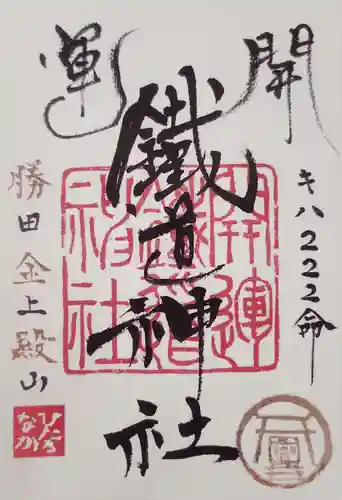 開運
キハ222命
鐵道神社
開運鐵道神社
勝田 金上殿山
ひたちなか